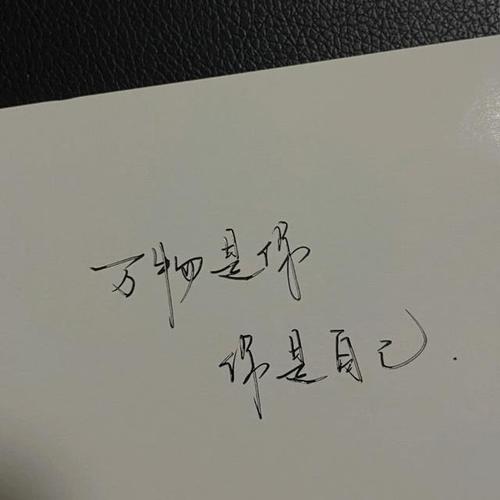 万物是你
你是自己.